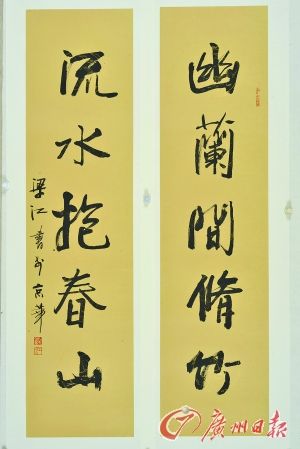 幽蘭間脩竹
流水抱春山
梁江書於京華
廣州日报